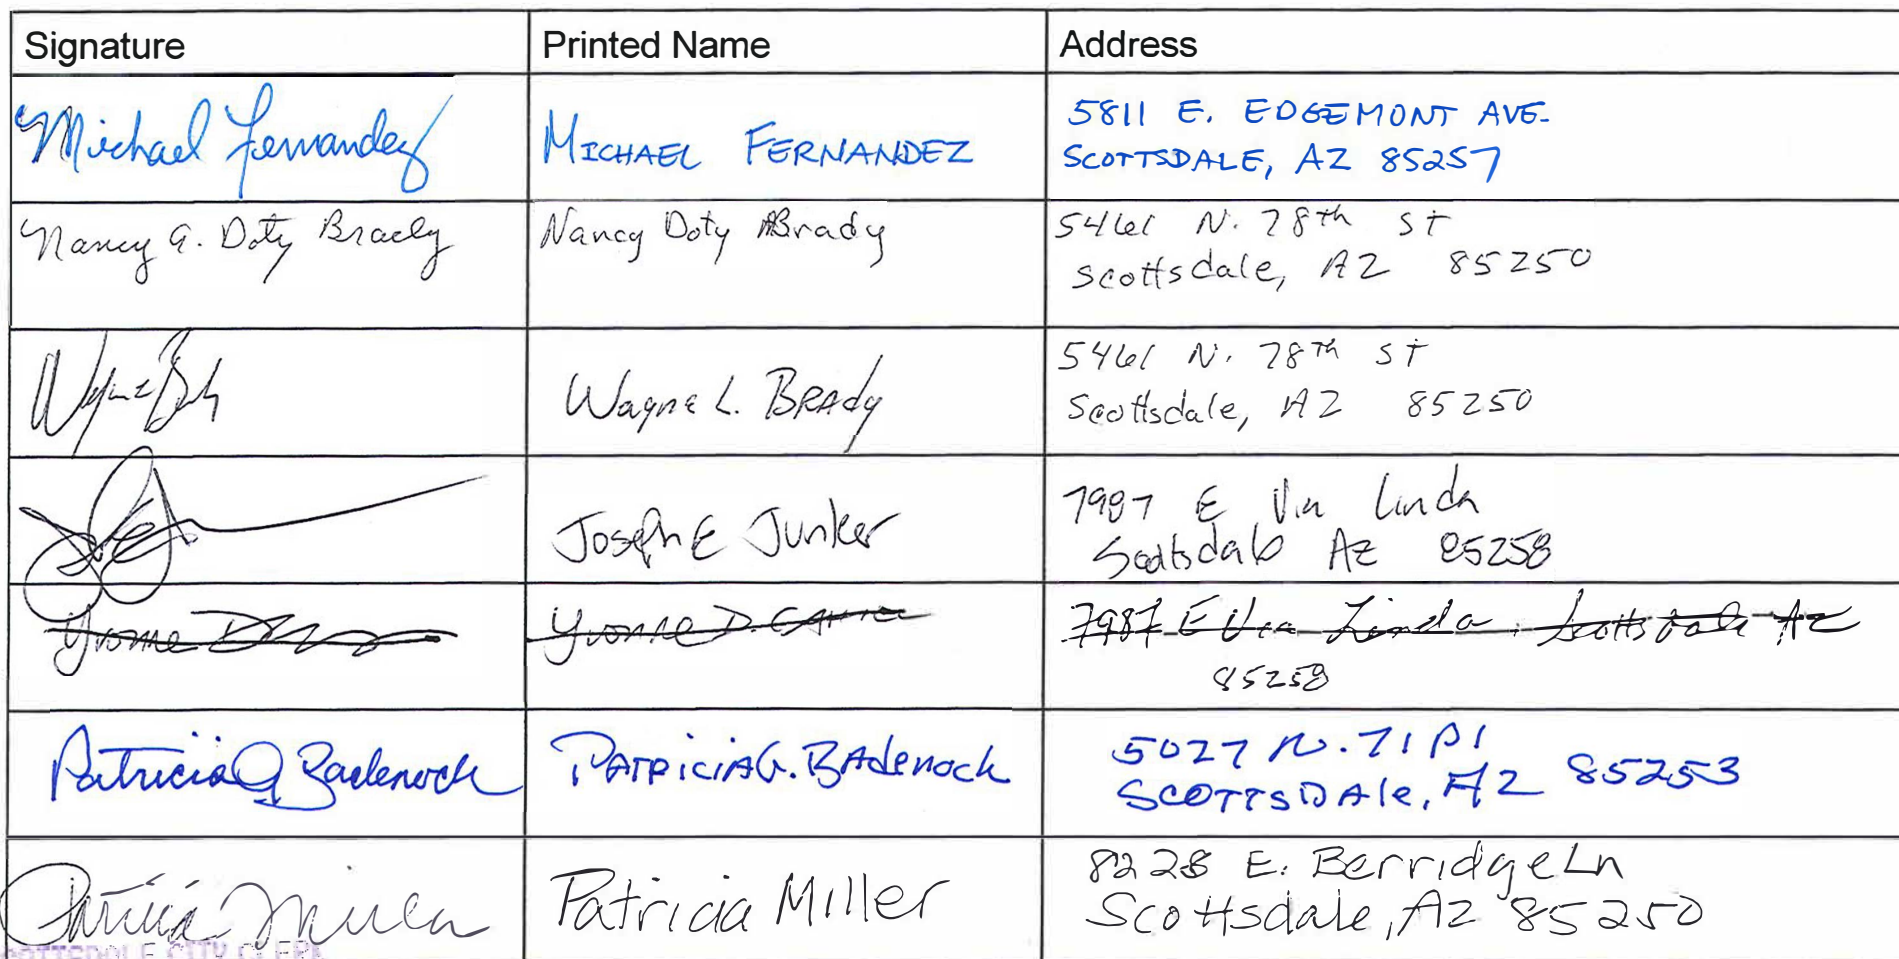 Signature Printed Name Address
Michael Fernandez MICHAEL FERNANDEZ 5811 E. EDGEMONT AVE.
SCOTTSDALE, AZ 85257
Nancy G. Doty Brady Nancy Doty Brady 5461 N. 78th St
Scottsdale, AZ 85250
Wayne L. BRAdy 5461 N. 78Th St
Scottsdale, AZ 85250
Joseph E Junker 7987 E Via Linda
Scottsdale Az 85258
Yvonne Yvonne D. 7987 E Via Linda, Scottsdale Az
85258
Patricia G Badenoch PATRICIA G. BAdenoch 5027 N. 71 Pl
SCOTTSDAle, AZ 85253
Patricia Miller Patricia Miller 8228 E. Berridge Ln
Scottsdale, AZ 85250
SCOTTSDALE CITY CLERK